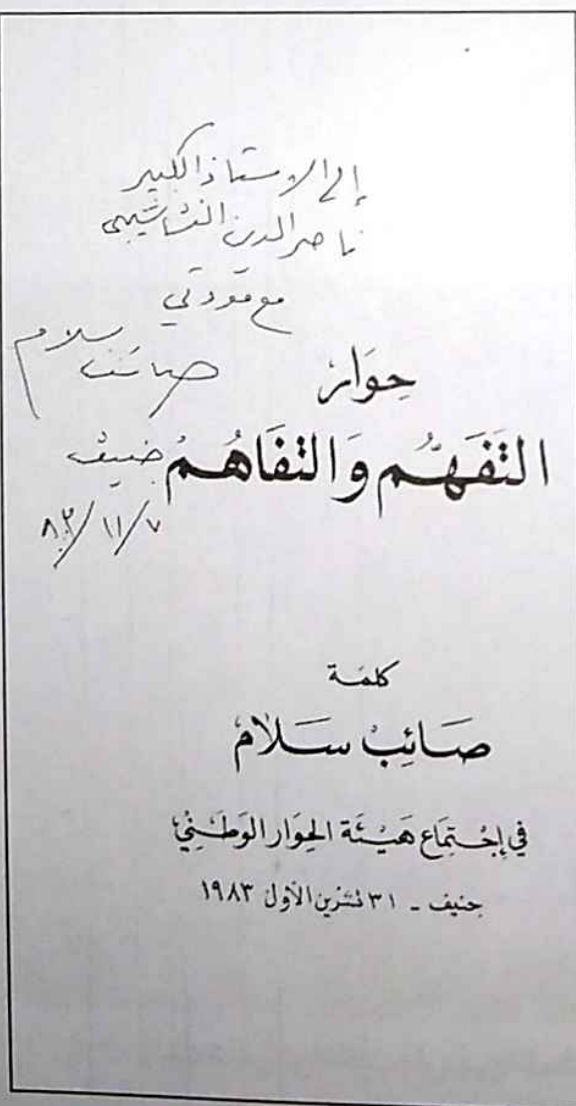 إلى الاستاذ الكبير
ناصر الدين النشاشيبي
مع مودتي
صائب سلام
جنيف
٨٣/١١/٧
حِوَار
التَفَهُّم وَالتفَاهُم
كلمَة
صَائِبْ سَلَام
في إجْتِمَاع هَيْئَة الحِوَار الوَطَنيْ
جنيف - ٣١ تشرين الأول ١٩٨٣